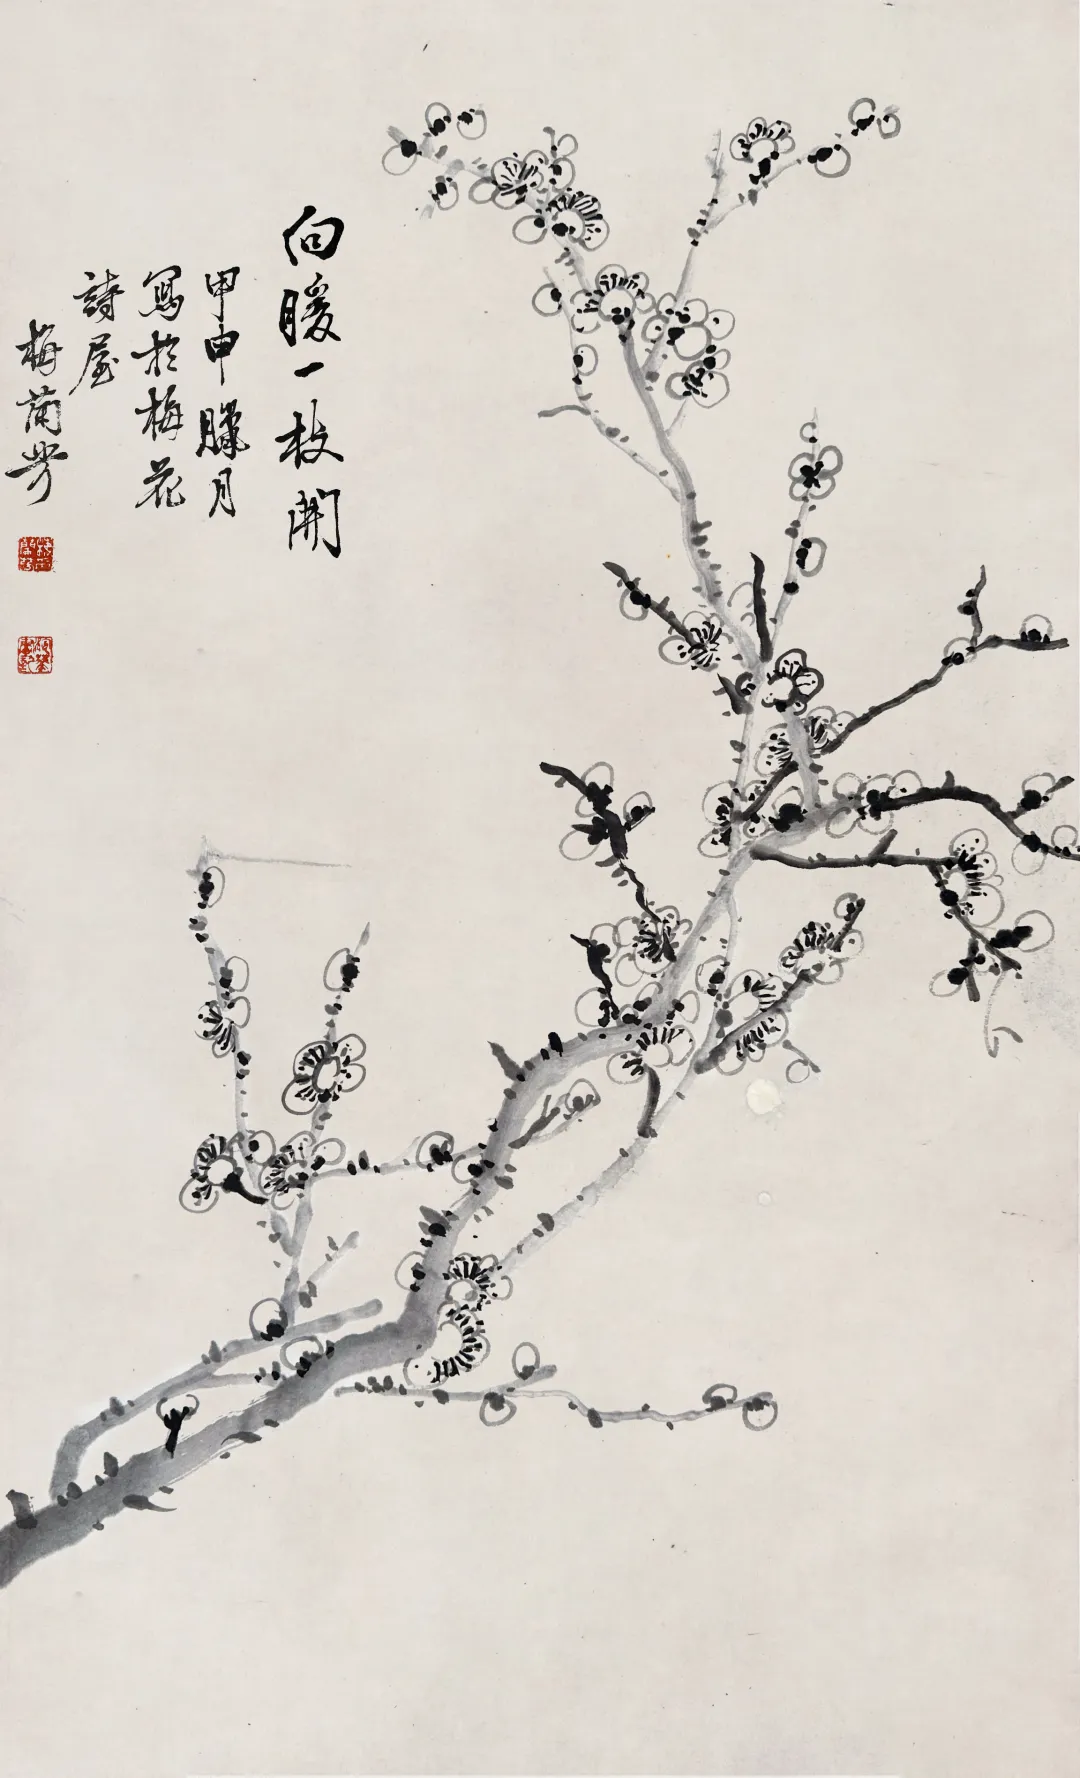 向暖一枝開
甲申臘月
寫於梅花
詩屋
梅蘭芳